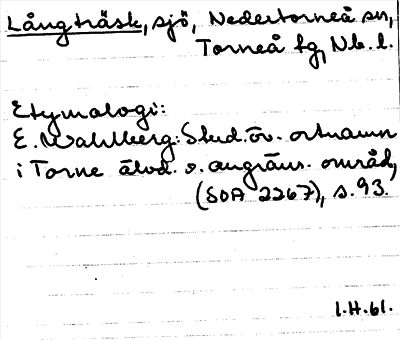 Långträsk, sjö, Nedertorneå sn,
Torneå fg, Nb. l.
Etymologi:
E. Wahlberg: Stud. öv. ortnamn
i Torne älvd. o. angräns. områd,
(SOA 2267), s. 93.
1.H.61.